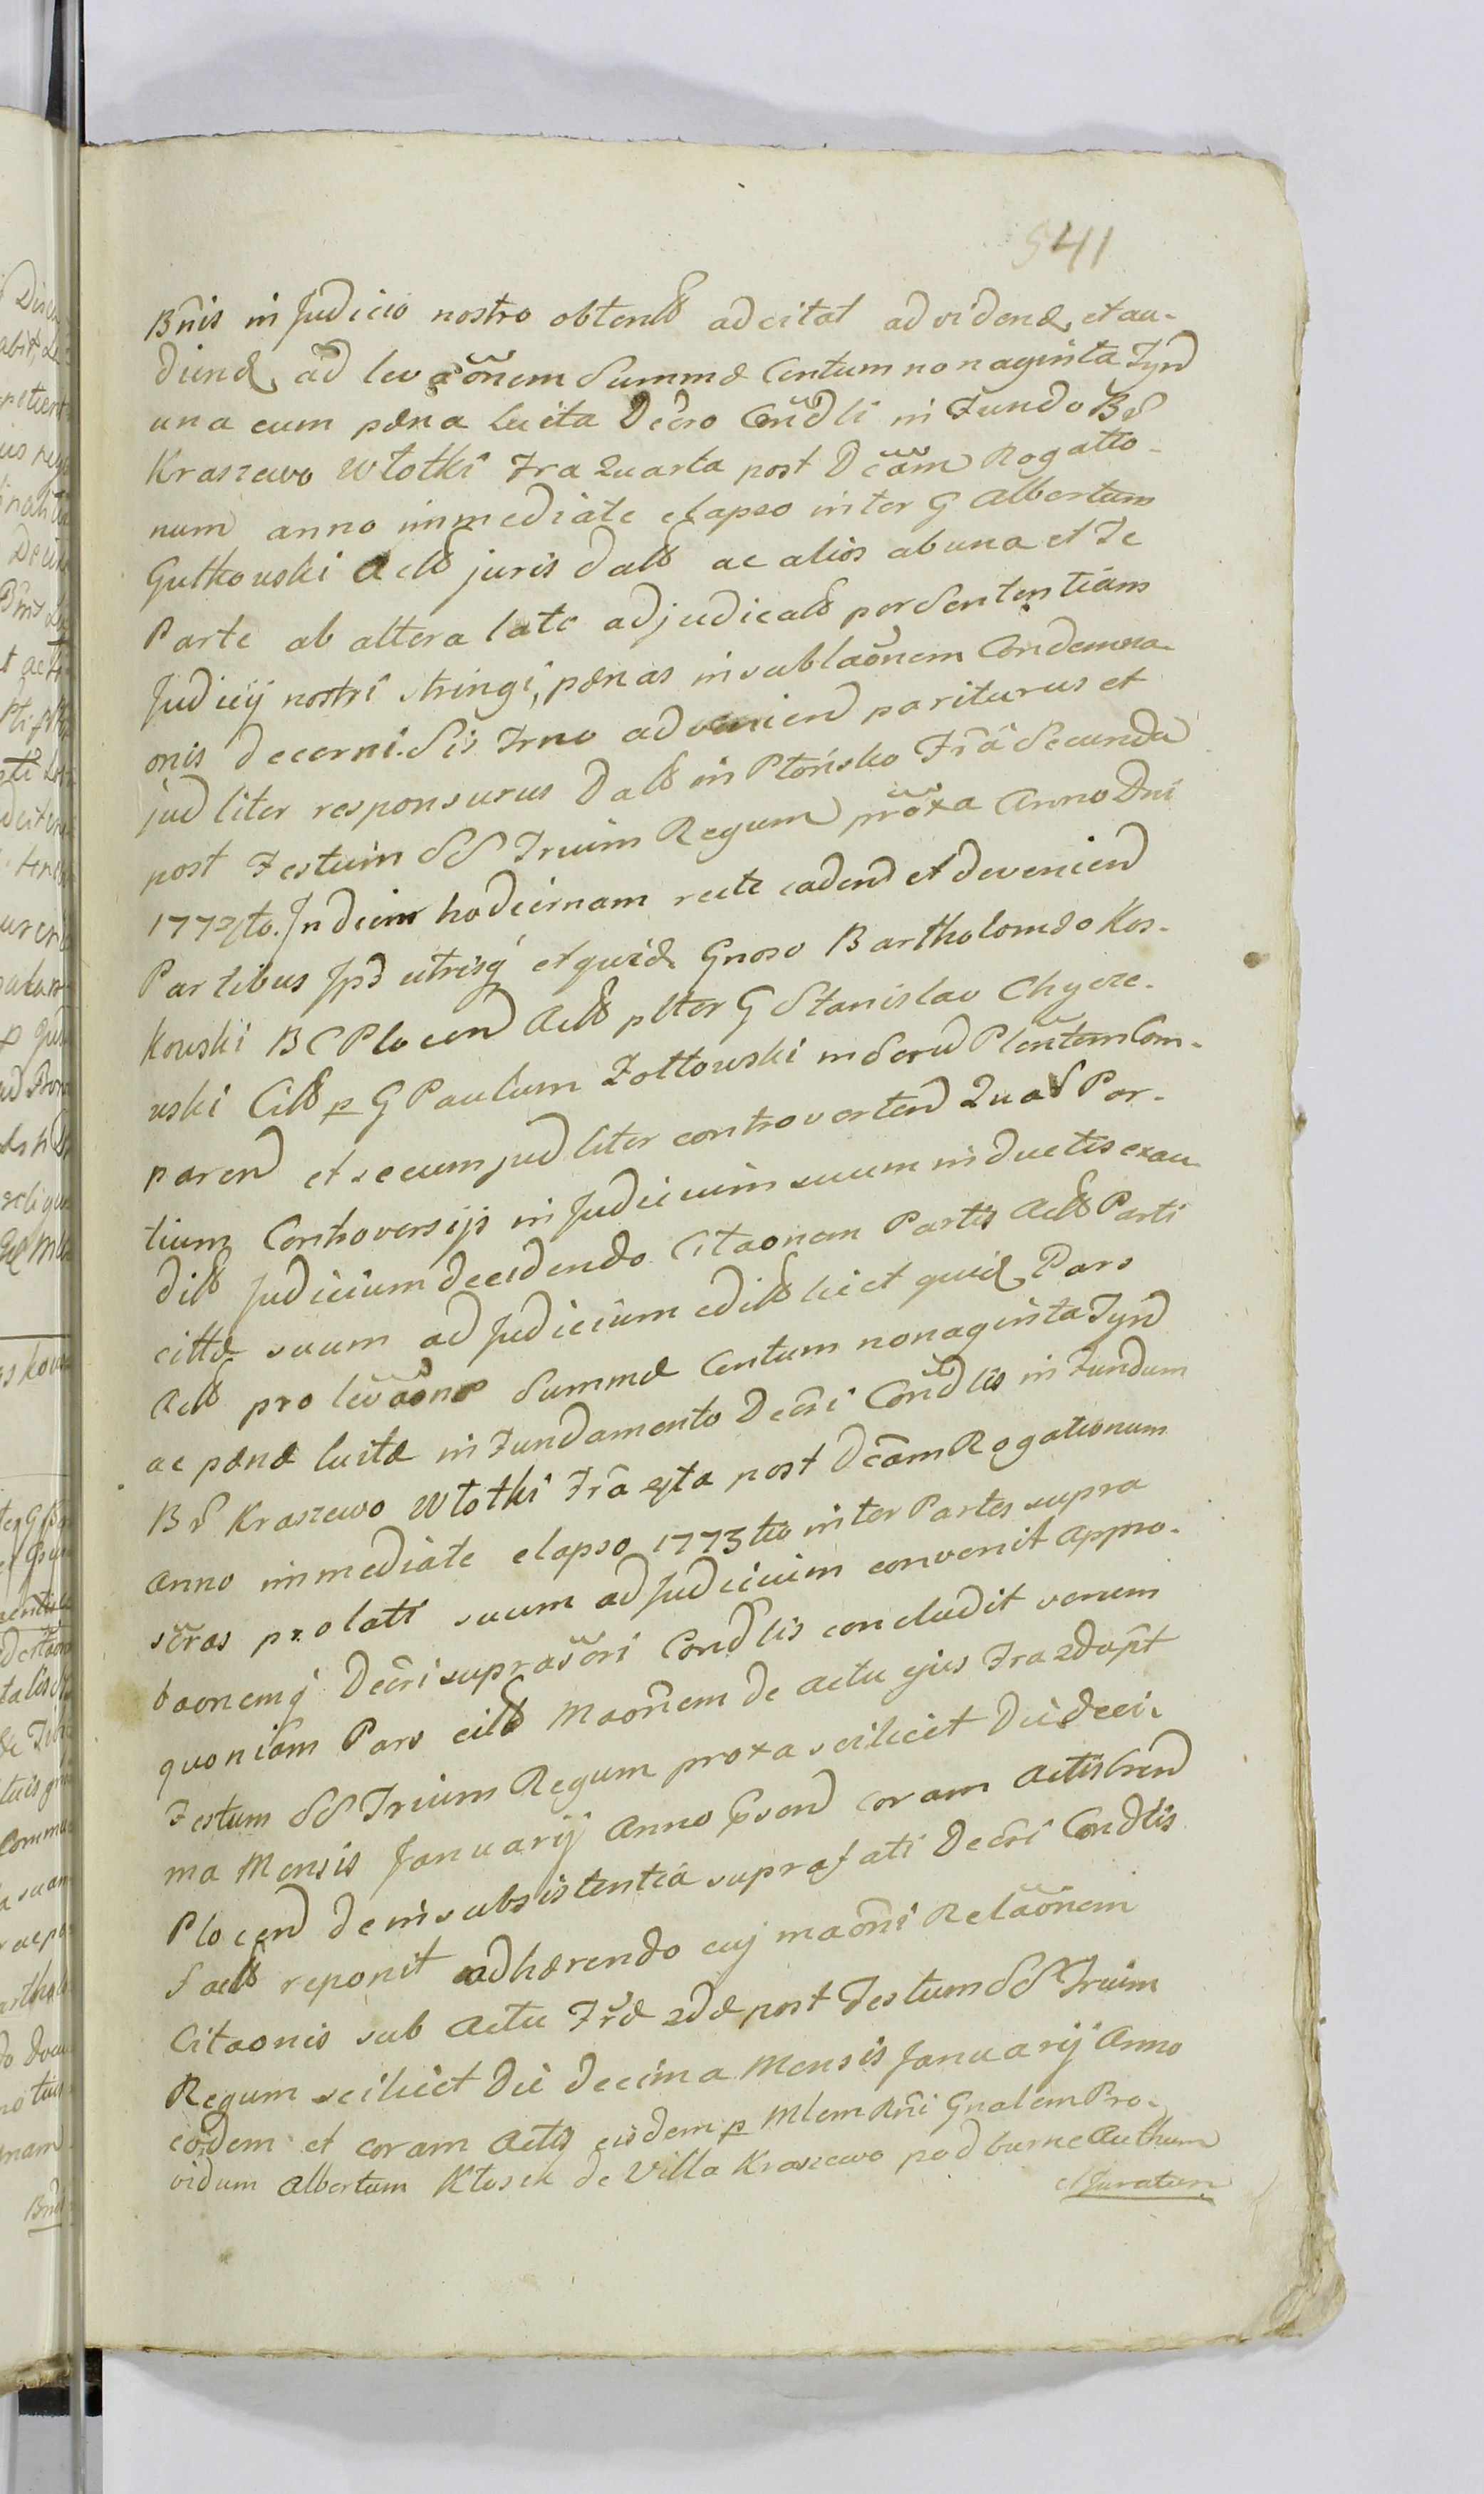 541
Bnis in Judicio nostro obtent adcitat ad videnđ, et au-
diend, ad levaõnem Summæ Centum nonaginta Tynf
una cum pæna luita Decro Condli in Fundo B̃
Kraszewo Wtotki Fra Quarta post Dcam Rogatio-
num anno immediate elapso inter G Albertum
Gutkowski Act juris dat ac alios ab una et Te
Parte ab altera late adjudicat per Sententiam
Judicij nostri stringi, pænas in sublaõnem Condemna-
onis decerni. Sis Trno advenienđ pariturus et
judliter responsurus Dat in Płońsko Fr̃a Secunda
post Festum SS Trium Regum proxa Anno Dni
1774to. In diem hodiernam recte cadenđ et devenienđ
Partibus Ipš utrisq et quidē Gnoso Bartholomæo Kos-
kowski B C Plocen Act plter G Stanislao Chycze-
wski Citt p G Paulum Zołtowski in Serv Plentem Com-
parenđ et secum judliter controvertenđ Quar Par-
tium Controversijs in Judicium suum inductis exau-
dit Judicium decidendo Citaonem Partis Act Parti
cittæ suum ad Judicium edit licet quiđ Pars
Act pro levaõne Summæ Centum nonaginta Tynf
ac pænæ luitæ in Fundamento Decri Condlis in Fundum
B Kraszewo Wtotki Fr̃a 4ta post Dcam Rogationum
Anno immediate elapso 1773tio inter Partes supra
scras prolati suum ad Judicium convenit appro-
baonemq Decri suprascri Condlis concludit verum
quoniam Pars citt Maõnem de actu ejus Fra 2da pt
Festum SS Trium Regum proxa scilicet Die deci-
ma Mensis Januarij Anno præsenđ coram Actis Cren
Plocen de insubsistentia suprafati Decri Condlis
fact reponit adhærendo cuj maõni Relaõnem
Citaonis sub Actu Fræ 2dæ post Festum SS Trium
Regum scilicet Die decima Mensis Januarij Anno
eodem et coram Actis eisdem p Mlem Rñi Gnalem Pro-
vidum Albertum Kłosek de Villa Kraszewo podburne Authum
et Juratum